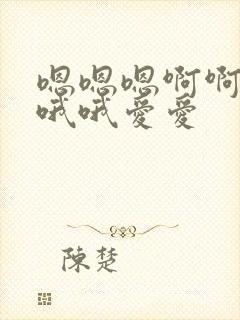 嗯嗯嗯啊啊
哦哦爱爱
陳楚